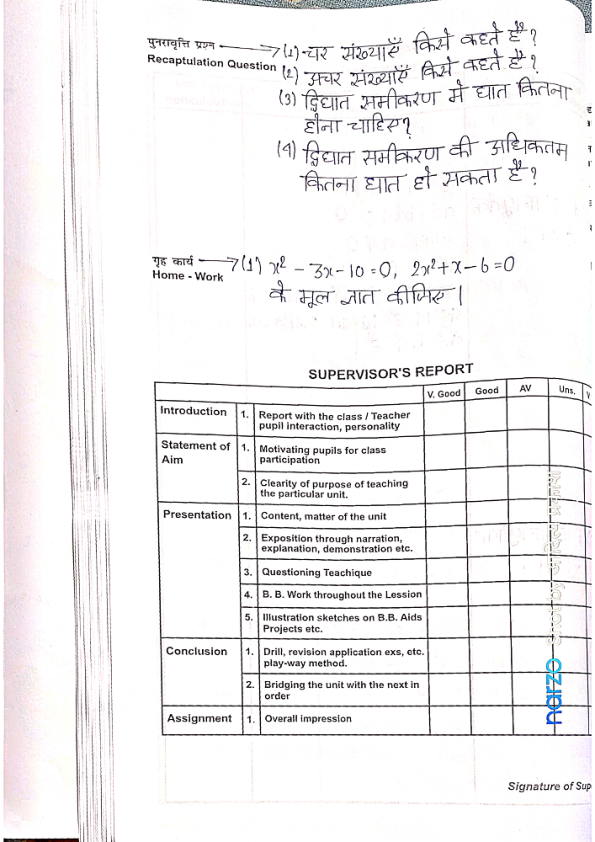 पुनरावृत्ति प्रश्न → (1) चर संख्याएँ किसे कहते है?
Recaptulation Question (2) अचर संख्याएँ किसे कहते है?
(3) द्विघात समीकरण मे घात कितना
होना चाहिए?
(4) द्विघात समीकरण की अधिकतम
कितना घात हो सकता है?
गृह कार्य → (1) x² - 3x - 10 = 0, 2x² + x - 6 = 0
Home - Work
के मूल ज्ञात कीजिए।
SUPERVISOR'S REPORT
V. Good Good AV Uns.
Introduction 1. Report with the class / Teacher
pupil interaction, personality
Statement of 1. Motivating pupils for class
Aim participation
2. Clearity of purpose of teaching
the particular unit.
Presentation 1. Content, matter of the unit
2. Exposition through narration,
explanation, demonstration etc.
3. Questioning Teachique
4. B. B. Work throughout the Lession
5. Illustration sketches on B.B. Aids
Projects etc.
Conclusion 1. Drill, revision application exs, etc.
play-way method.
2. Bridging the unit with the next in
order
Assignment 1. Overall impression
Signature of Sup
narzo